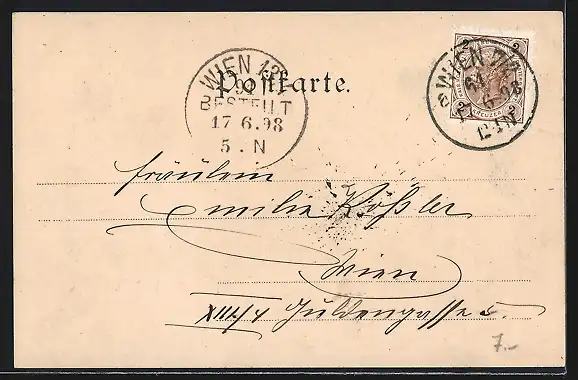 Postkarte.
WIEN 12/1
BESTELLT
17 6.98
5 . N
WIEN
2
2
2
KREUZER
12-1N
Fräulein
Emilie Rößler
Wien
XIII/4 Guldengasse 5.
7.-